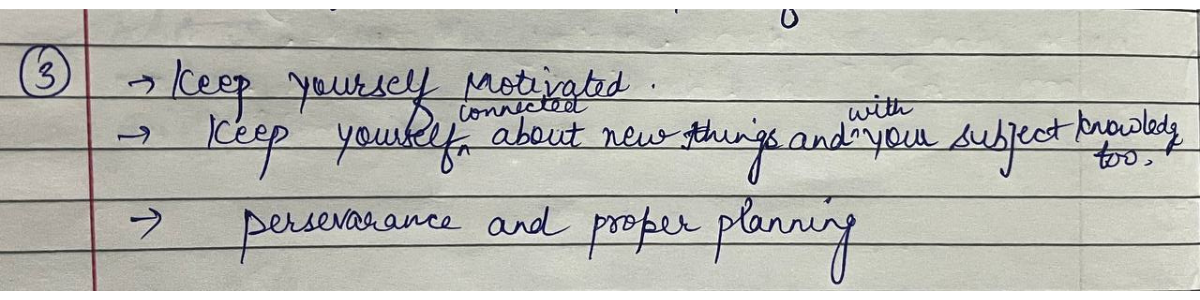 ③ → Keep yourself Motivated.
→ Keep yourself connected about new things and with your subject knowledg too.
→ persevarance and proper planning